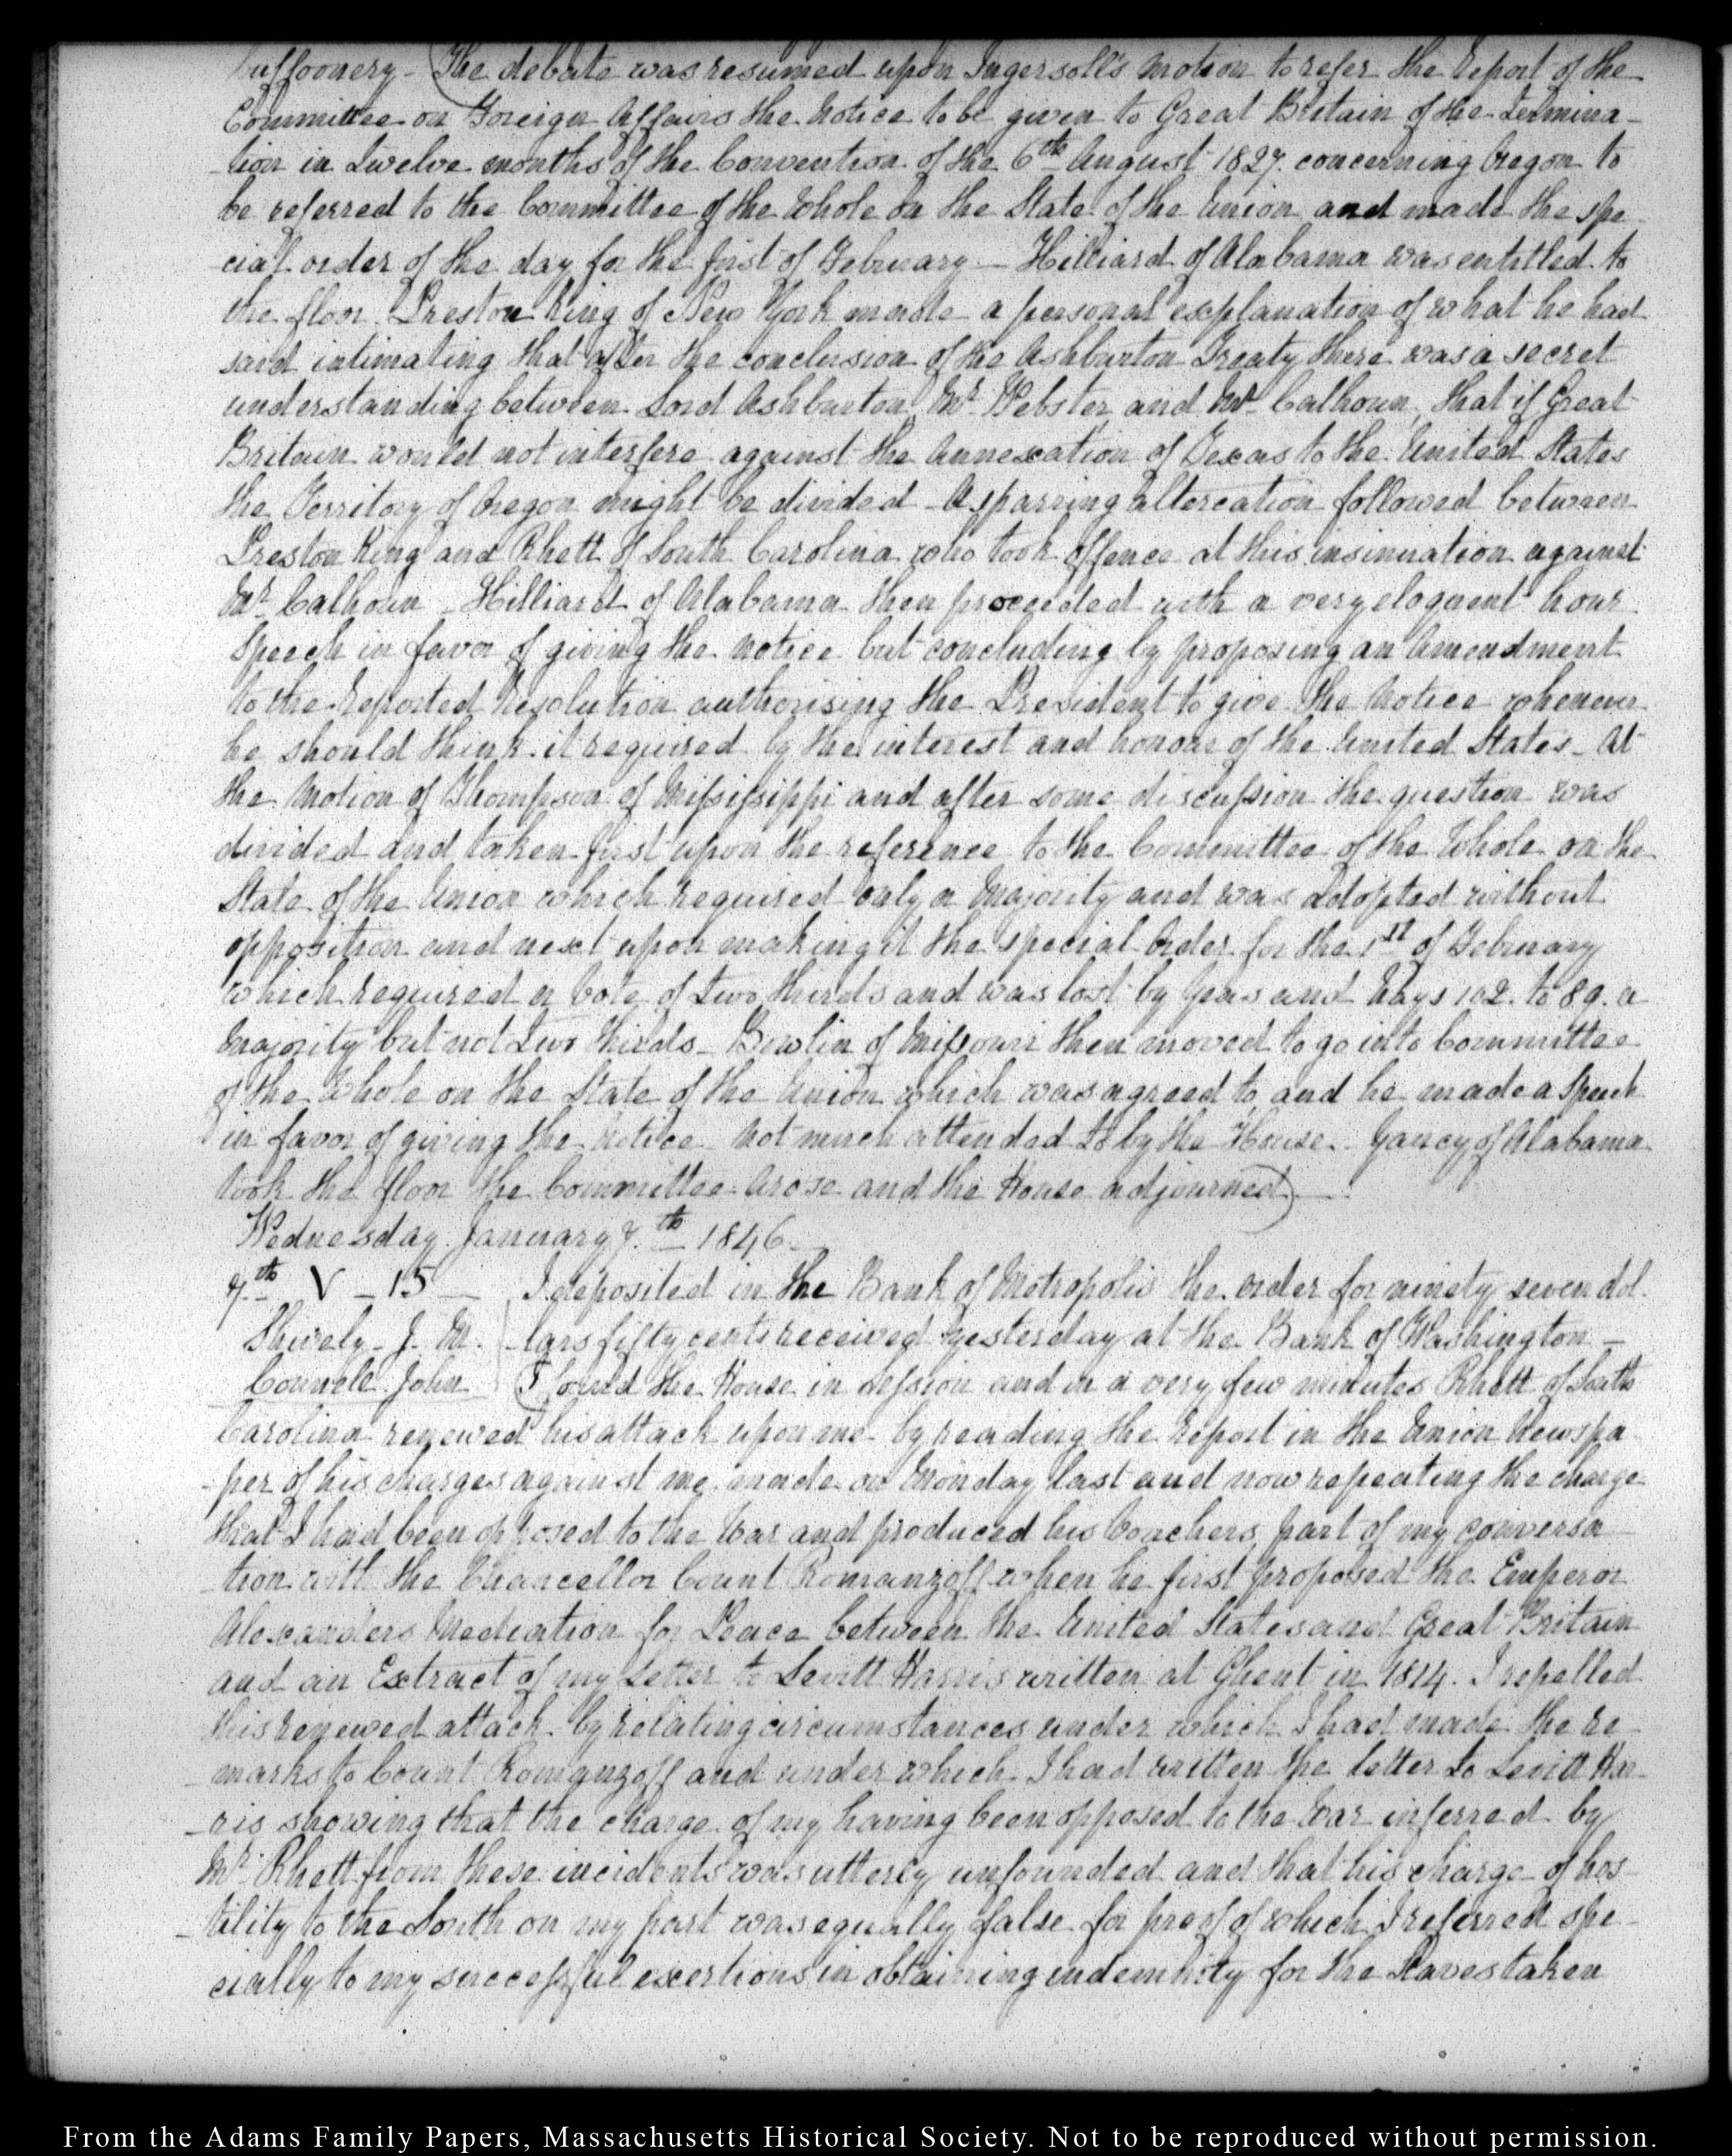 buffoonery – (The debate was resumed upon Ingersoll's motion to refer the report of the
Committee on Foreign Affairs the Notice to be given to Great Britain of the Termina-
-tion in Twelve months of the Convention of the 6th August 1827. concerning Oregon to
be referred to the Committee of the Whole on the State of the Union and made the spe
-cial order of the day for the first of February – Hilliard of Alabama was entitled to
the floor. Preston King of New York made a personal explanation of what he had
said intimating that after the conclusion of the Ashburton Treaty there was a secret
understanding between Lord Ashburton, Mr Webster and Mr Calhoun, that if Great
Britain would not interfere against the Annexation of Texas to the United States
the Territory of Oregon might be divided – A sparring altercation followed between
Preston King and Rhett of South Carolina who took offence at this insinuation against
Mr Calhoun – Hilliard of Alabama then proceeded with a very eloquent hour
Speech in favor of giving the notice but concluding by proposing an Amendment
to the reported Resolution authorising the President to give the Notice whenever
he should think it required by the interest and honour of the United States – At
the Motion of Thompson of Missisippi and after some discussion the question was
divided and taken first upon the reference to the Committee of the Whole on the
State of the Union which required only a Majority and was adopted without
opposition and next upon making it the special Order for the 1st of February
which required a vote of Two thirds and was lost by Yeas and Nays 102. to 89. a
Majority but not Two thirds – Bowlin of Missouri then moved to go into Committee
of the Whole on the State of the Union which was agreed to, and he made a Speech
in favor of giving the notice not much attended to by the House. Yancy of Alabama
took the floor the Committee arose and the House adjourned) –
Wednesday January 7.th 1846 –
7.th V – 15 – I deposited in the Bank of Metropolis the order for ninety seven dol.
Shively – J. M. -lars fifty cents received yesterday at the Bank of Washington –
Connell John (I found the House in session and in a very few minutes Rhett of South
Carolina renewed his attack upon me by reading the report in the Union Newspa
-per of his charges against me made on Monday last and now repeating the charge
that I had been opposed to the War and produced his vouchers, part of my conversa
-tion with the Chancellor Count Romanzoff when he first proposed the Emperor
Alexanders Mediation for Peace between the United States and Great Britain
and an Extract of my Letter to Levitt Harris written at Ghent in 1814. I repelled
this renewed attack by relating circumstances under which I had made the re
-marks to Count Romanzoff and under which I had written the letter to Levitt Har-
-ris showing that the charge of my having been opposed to the War inferred by
Mr Rhett from these incidents was utterly unfounded and that his charge of hos
-tility to the South on my part was equally false for proof of which I referred spe-
cially to my successful exertions in obtaining indemnity for the Slaves taken
From the Adams Family Papers, Massachusetts Historical Society. Not to be reproduced without permission.